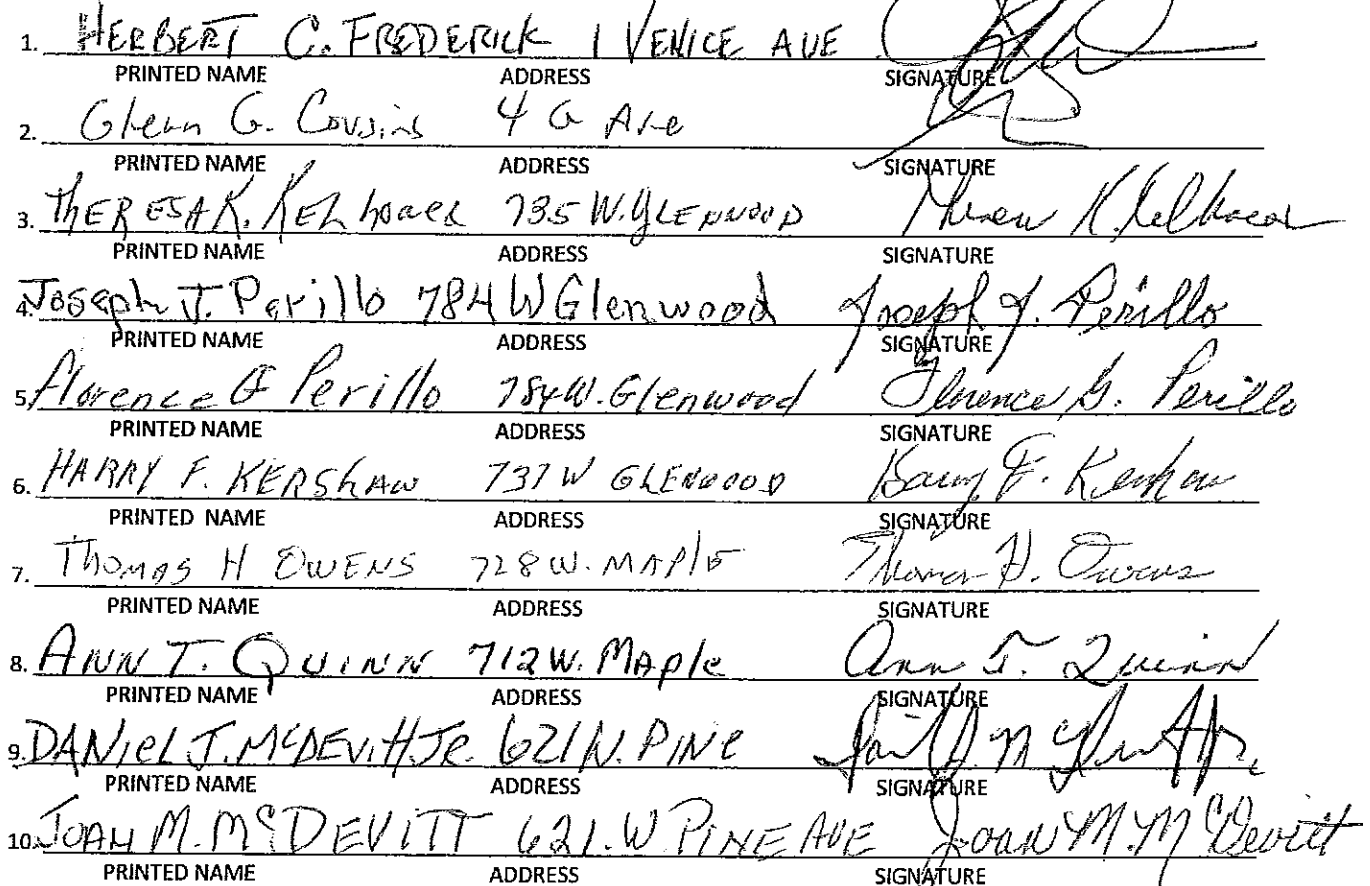 1. HERBERT C. FREDERICK 1 VENICE AVE
PRINTED NAME ADDRESS SIGNATURE
2. Glenn G. Cousins 4 G Ave
PRINTED NAME ADDRESS SIGNATURE
3. THERESA K. 735 W. GLENWOOD Theresa K.
PRINTED NAME ADDRESS SIGNATURE
4. Joseph J. Perillo 784 W Glenwood Joseph J. Perillo
PRINTED NAME ADDRESS SIGNATURE
5. Florence G Perillo 784 W. Glenwood Florence G. Perillo
PRINTED NAME ADDRESS SIGNATURE
6. HARRY F. KERSHAW 737 W GLENWOOD Harry F. Kershaw
PRINTED NAME ADDRESS SIGNATURE
7. THOMAS H OWENS 728 W. MAPLE Thomas H. Owens
PRINTED NAME ADDRESS SIGNATURE
8. ANN T. QUINN 712 W. Maple Ann T. Quinn
PRINTED NAME ADDRESS SIGNATURE
9. DANIEL J. McDEVITT JR. 621 W. PINE Daniel J. McDevitt Jr.
PRINTED NAME ADDRESS SIGNATURE
10. JOAN M. McDEVITT 621. W. PINE AVE Joan M. McDevitt
PRINTED NAME ADDRESS SIGNATURE